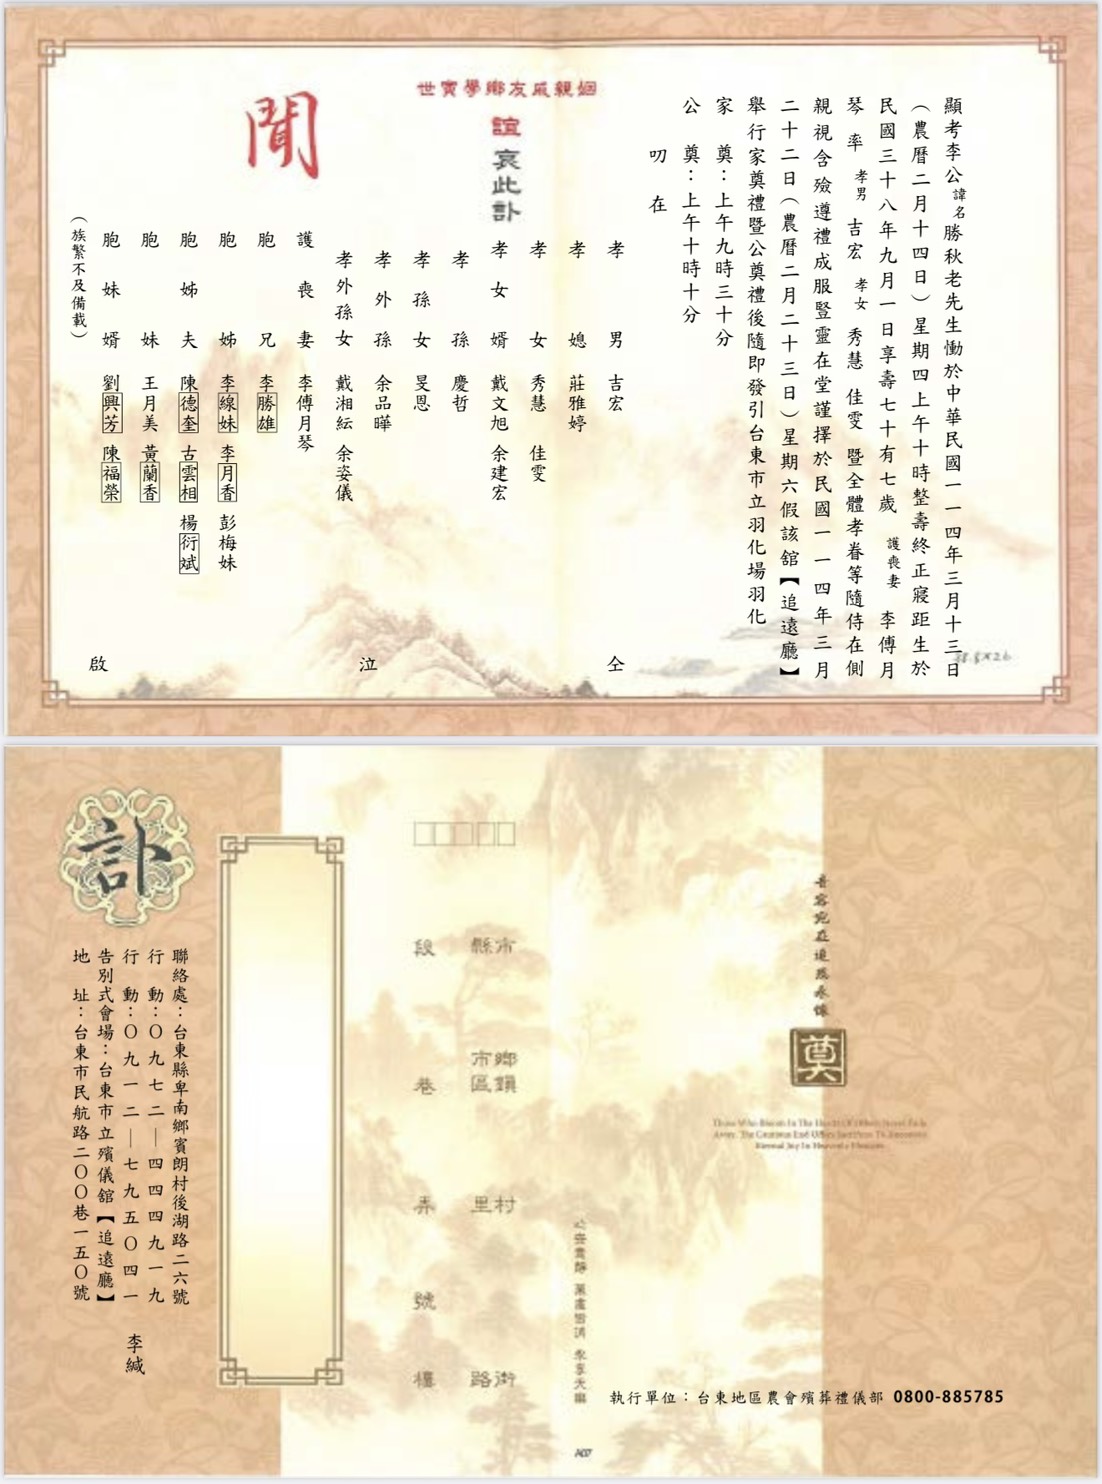 顯考李公諱名勝秋老先生慟於中華民國一一四年三月十三日
（農曆二月十四日）星期四上午十時整壽終正寢距生於
民國三十八年九月一日享壽七十有七歲 護喪妻 李傅月
琴 率 孝男 吉宏 孝女 秀慧 佳雯 暨全體孝眷等隨侍在側
親視含殮遵禮成服豎靈在堂謹擇於民國一一四年三月
二十二日（農曆二月二十三日）星期六假該舘【追遠廳】
舉行家奠禮暨公奠禮後隨即發引台東市立羽化場羽化
家 奠：上午九時三十分
公 奠：上午十時十分
叨在
姻親戚友鄉學寅世
誼 哀此訃
聞
孝男 吉宏
孝媳 莊雅婷
孝女 秀慧 佳雯
孝女婿 戴文旭 余建宏
孝孫 慶哲
孝孫女 旻恩
孝外孫 余品曄
孝外孫女 戴湘紜 余姿儀
護喪妻 李傅月琴
胞兄 李勝雄
胞姊 李線妹 李月香 彭梅妹
胞姊夫 陳德奎 古雲相 楊衍斌
胞妹 王月美 黃蘭香
胞妹婿 劉興芳 陳福榮
（族繁不及備載）
仝 泣 啟
訃
聯絡處：台東縣卑南鄉賓朗村後湖路二六號
行動：〇九七二—四四四九一九
行動：〇九一二—七九五〇四一
告別式會場：台東市立殯儀舘【追遠廳】
地址：台東市民航路二〇〇巷一五〇號
李緘
縣市
鄉鎮市區
村里
路街
段
巷
弄
號
樓
奠
執行單位：台東地區農會殯葬禮儀部 0800-885785
A07